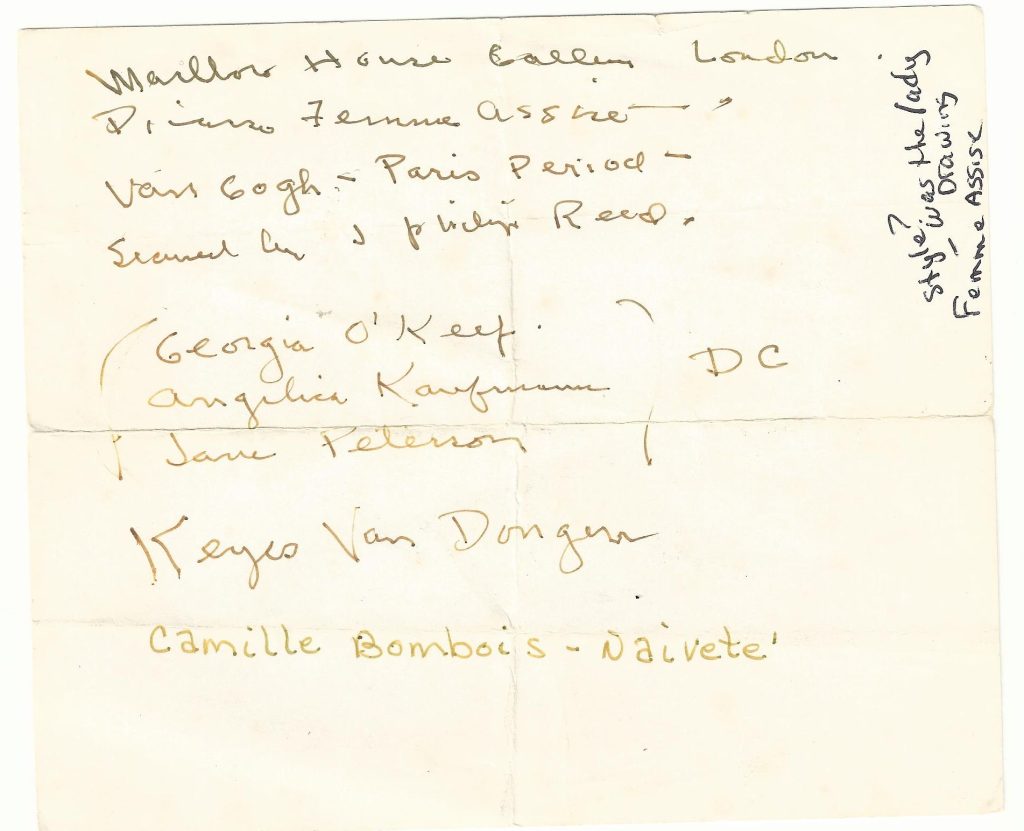 House Gallery London
Picasso Femme Assise -
Van Gogh - Paris Period -
by J Philip Reed.
(Georgia O'Keef.
Angelica Kaufmann
Jane Peterson)
DC
Keyes Van Dongen
Camille Bombois - Naivete'
Style?
- was the lady
Drawing
Femme Assise